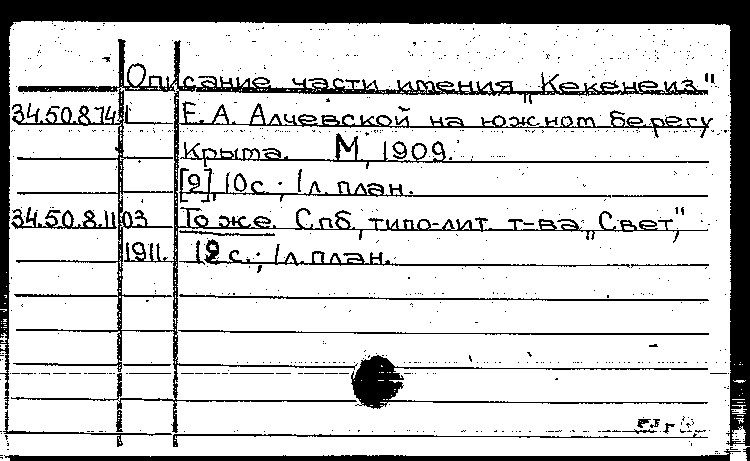 Описание части имения „Кекенеиз"
34.50.8.741 Е. А. Алчевской на южном берегу
Крыма. М, 1909.
[2], 10 с.; 1 л. план.
34.50.8.1103 То же. Спб, типо-лит. т-ва „Свет",
1911. 12 с.; 1 л. план.